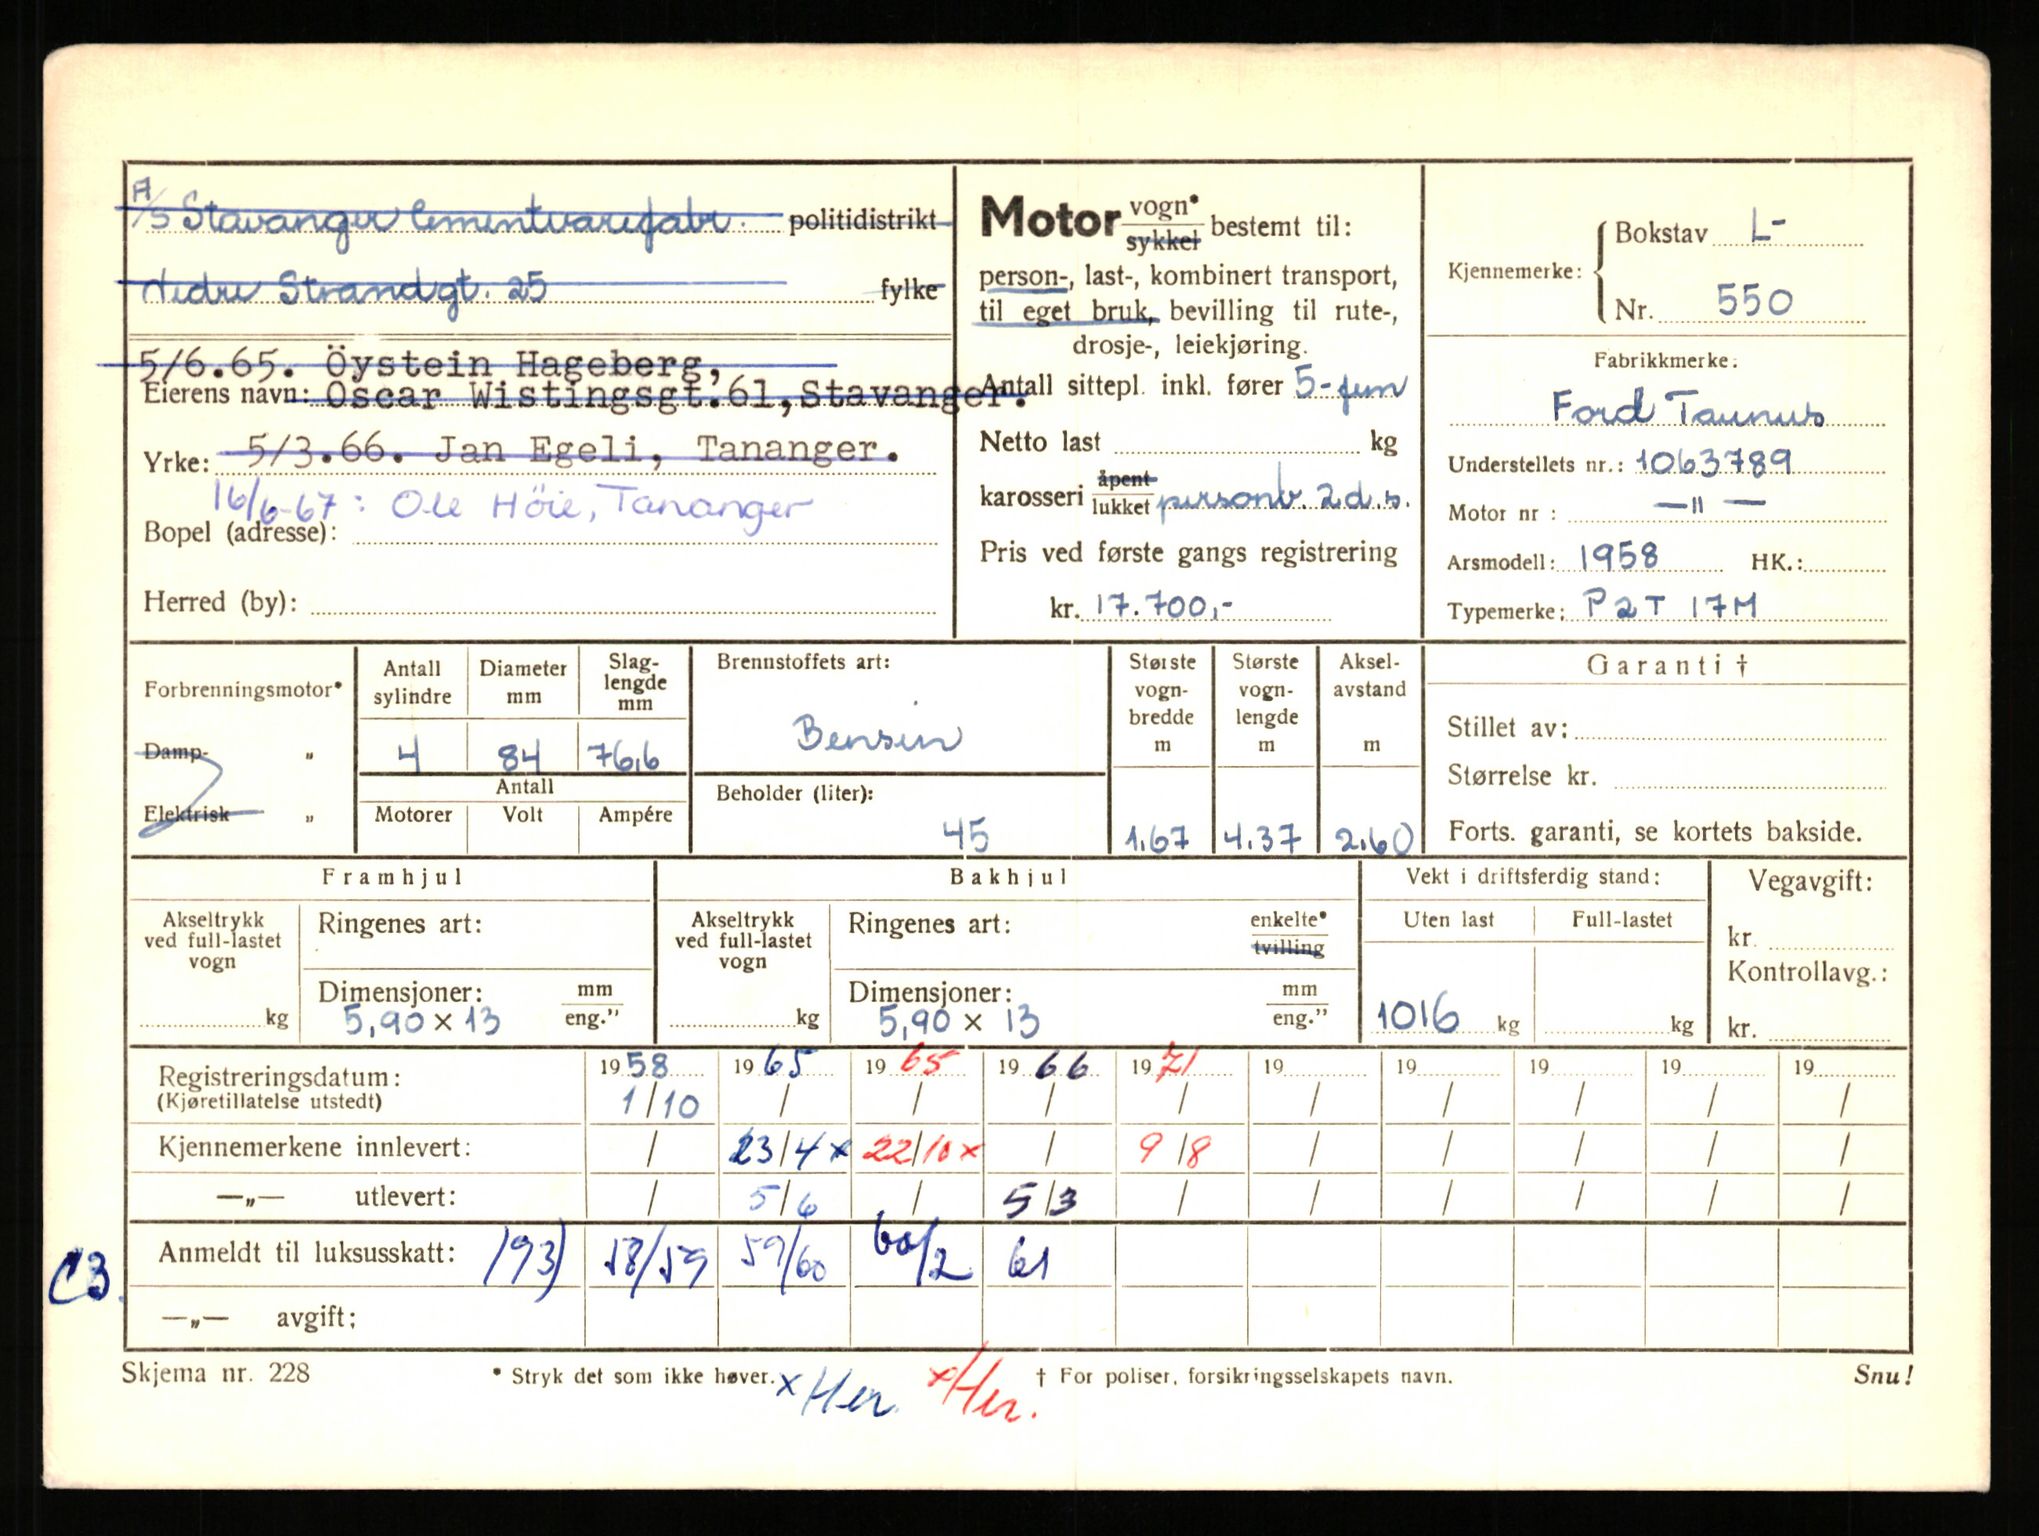 A/S Stavanger Cementvarefabr. politidistrikt
Nedre Strandgt. 25 fylke
5/6.65. Öystein Hageberg,
Eierens navn: Oscar Wistingsgt.61,Stavanger.
Yrke: 5/3.66. Jan Egeli, Tananger.
16/6-67: Ole Höie, Tananger
Bopel (adresse):
Herred (by):
Motor vogn* sykkel bestemt til:
person-, last-, kombinert transport,
til eget bruk, bevilling til rute-,
drosje-, leiekjøring.
Antall sittepl. inkl. fører 5-fem
Netto last kg
karosseri åpent lukket personb. 2 d.s.
Pris ved første gangs registrering
kr. 17.700,-
Kjennemerke: { Bokstav L-
Nr. 550
Fabrikkmerke:
Ford Taunus
Understellets nr.: 1063789
Motor nr : —"—
Arsmodell: 1958 HK.:
Typemerke: P2T 17M
Forbrenningsmotor*
Damp- "
Elektrisk "
Antall sylindre
4
Diameter mm
84
Slag-lengde mm
76,6
Antall
Motorer Volt Ampére
Brennstoffets art:
Bensin
Beholder (liter):
45
Største vogn-bredde m
1.67
Største vogn-lengde m
4.37
Aksel-avstand m
2.60
Garanti †
Stillet av:
Størrelse kr.
Forts. garanti, se kortets bakside.
Framhjul
Akseltrykk ved full-lastet vogn
kg
Ringenes art:
Dimensjoner: mm eng."
5,90 x 13
Bakhjul
Akseltrykk ved full-lastet vogn
kg
Ringenes art: enkelte* tvilling
Dimensjoner: mm eng."
5,90 x 13
Vekt i driftsferdig stand:
Uten last Full-lastet
1016 kg kg
Vegavgift:
kr.
Kontrollavg.:
kr.
Registreringsdatum: 1958 1965 1965 1966 1971 19 19 19 19 19
(Kjøretillatelse utstedt) 1/10 / / / / / / / / /
Kjennemerkene innlevert: / 23/4 x 22/10 x / 9/8 / / / / /
—„— utlevert: / 5/6 / 5/3 / / / / / /
Anmeldt til luksusskatt: 193) 58/59 59/60 60/2 61
C3.
—„— avgift:
Skjema nr. 228 * Stryk det som ikke høver. x Her. x Her. † For poliser, forsikringsselskapets navn. Snu!